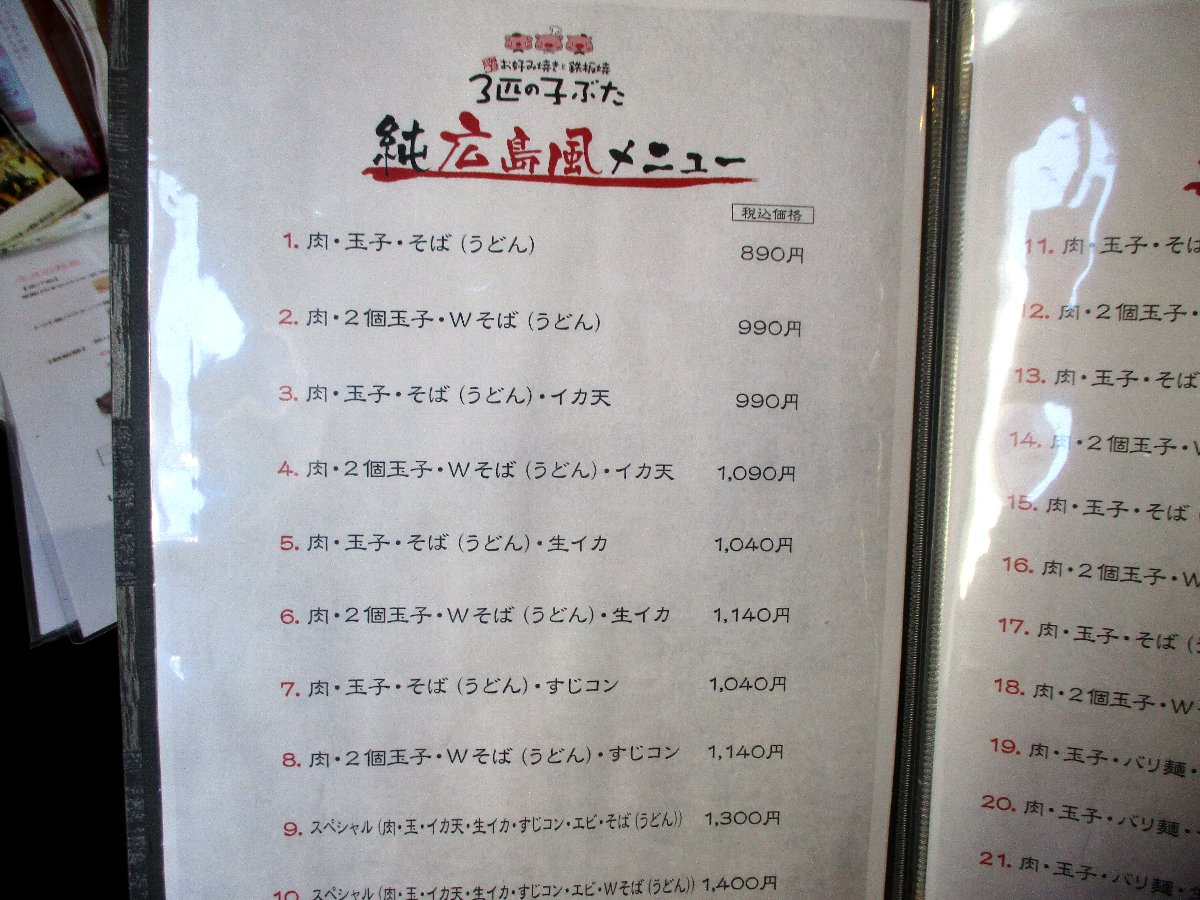 お好み焼きと鉄板焼
3匹の子ぶた
純広島風メニュー
税込価格
1. 肉・玉子・そば (うどん) 890円
2. 肉・2個玉子・Wそば (うどん) 990円
3. 肉・玉子・そば (うどん)・イカ天 990円
4. 肉・2個玉子・Wそば (うどん)・イカ天 1,090円
5. 肉・玉子・そば (うどん)・生イカ 1,040円
6. 肉・2個玉子・Wそば (うどん)・生イカ 1,140円
7. 肉・玉子・そば (うどん)・すじコン 1,040円
8. 肉・2個玉子・Wそば (うどん)・すじコン 1,140円
9. スペシャル (肉・玉・イカ天・生イカ・すじコン・エビ・そば (うどん)) 1,300円
10 スペシャル (肉・玉・イカ天・生イカ・すじコン・エビ・Wそば (うどん)) 1,400円
11. 肉・玉子・そば
12. 肉・2個玉子・
13. 肉・玉子・そば
14. 肉・2個玉子・W
15. 肉・玉子・そば
16. 肉・2個玉子・W
17. 肉・玉子・そば (う
18. 肉・2個玉子・W
19. 肉・玉子・バリ麺・
20. 肉・玉子・バリ麺・
21. 肉・玉子・バリ麺・